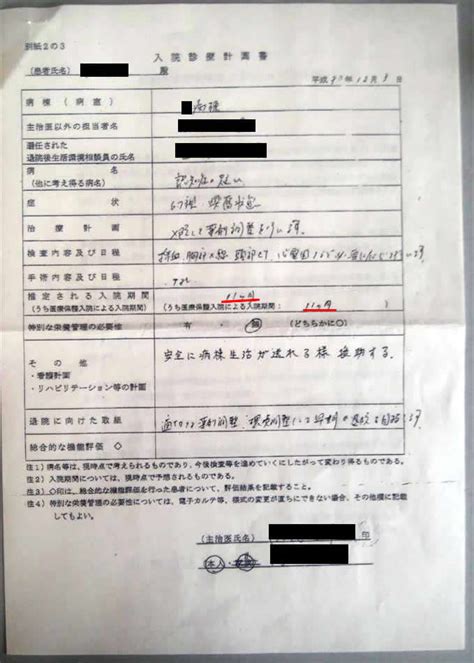 別紙2の3
入院診療計画書
(患者氏名) 殿
平成 年12月 日
病棟(病室) 病棟
主治医以外の担当者名
選任された
退院後生活環境相談員の氏名
病名
(他に考え得る病名) 認知症の疑い
症状 幻視、
治療計画 薬剤調整を行います
検査内容及び日程 採血、胸部X線、頭部CT、心電図
手術内容及び日程 なし
推定される入院期間 11ヶ月
(うち医療保護入院による入院期間) (うち医療保護入院による入院期間: 11ヶ月 )
特別な栄養管理の必要性 有 ・ 無 (どちらかに○)
その他
・看護計画
・リハビリテーション等の計画
安全に病棟生活が送れる様 援助する。
退院に向けた取組 薬剤調整、環境調整
総合的な機能評価 ◇
注1)病名等は、現時点で考えられるものであり、今後検査等を進めていくにしたがって変わり得るものである。
注2)入院期間については、現時点で予想されるものである。
注3)◇印は、総合的な機能評価を行った患者について、評価結果を記載すること。
注4)特別な栄養管理の必要性については、電子カルテ等、様式の変更が直ちにできない場合、その他欄に記載
してもよい。
(主治医氏名) 印
(本人・家族)